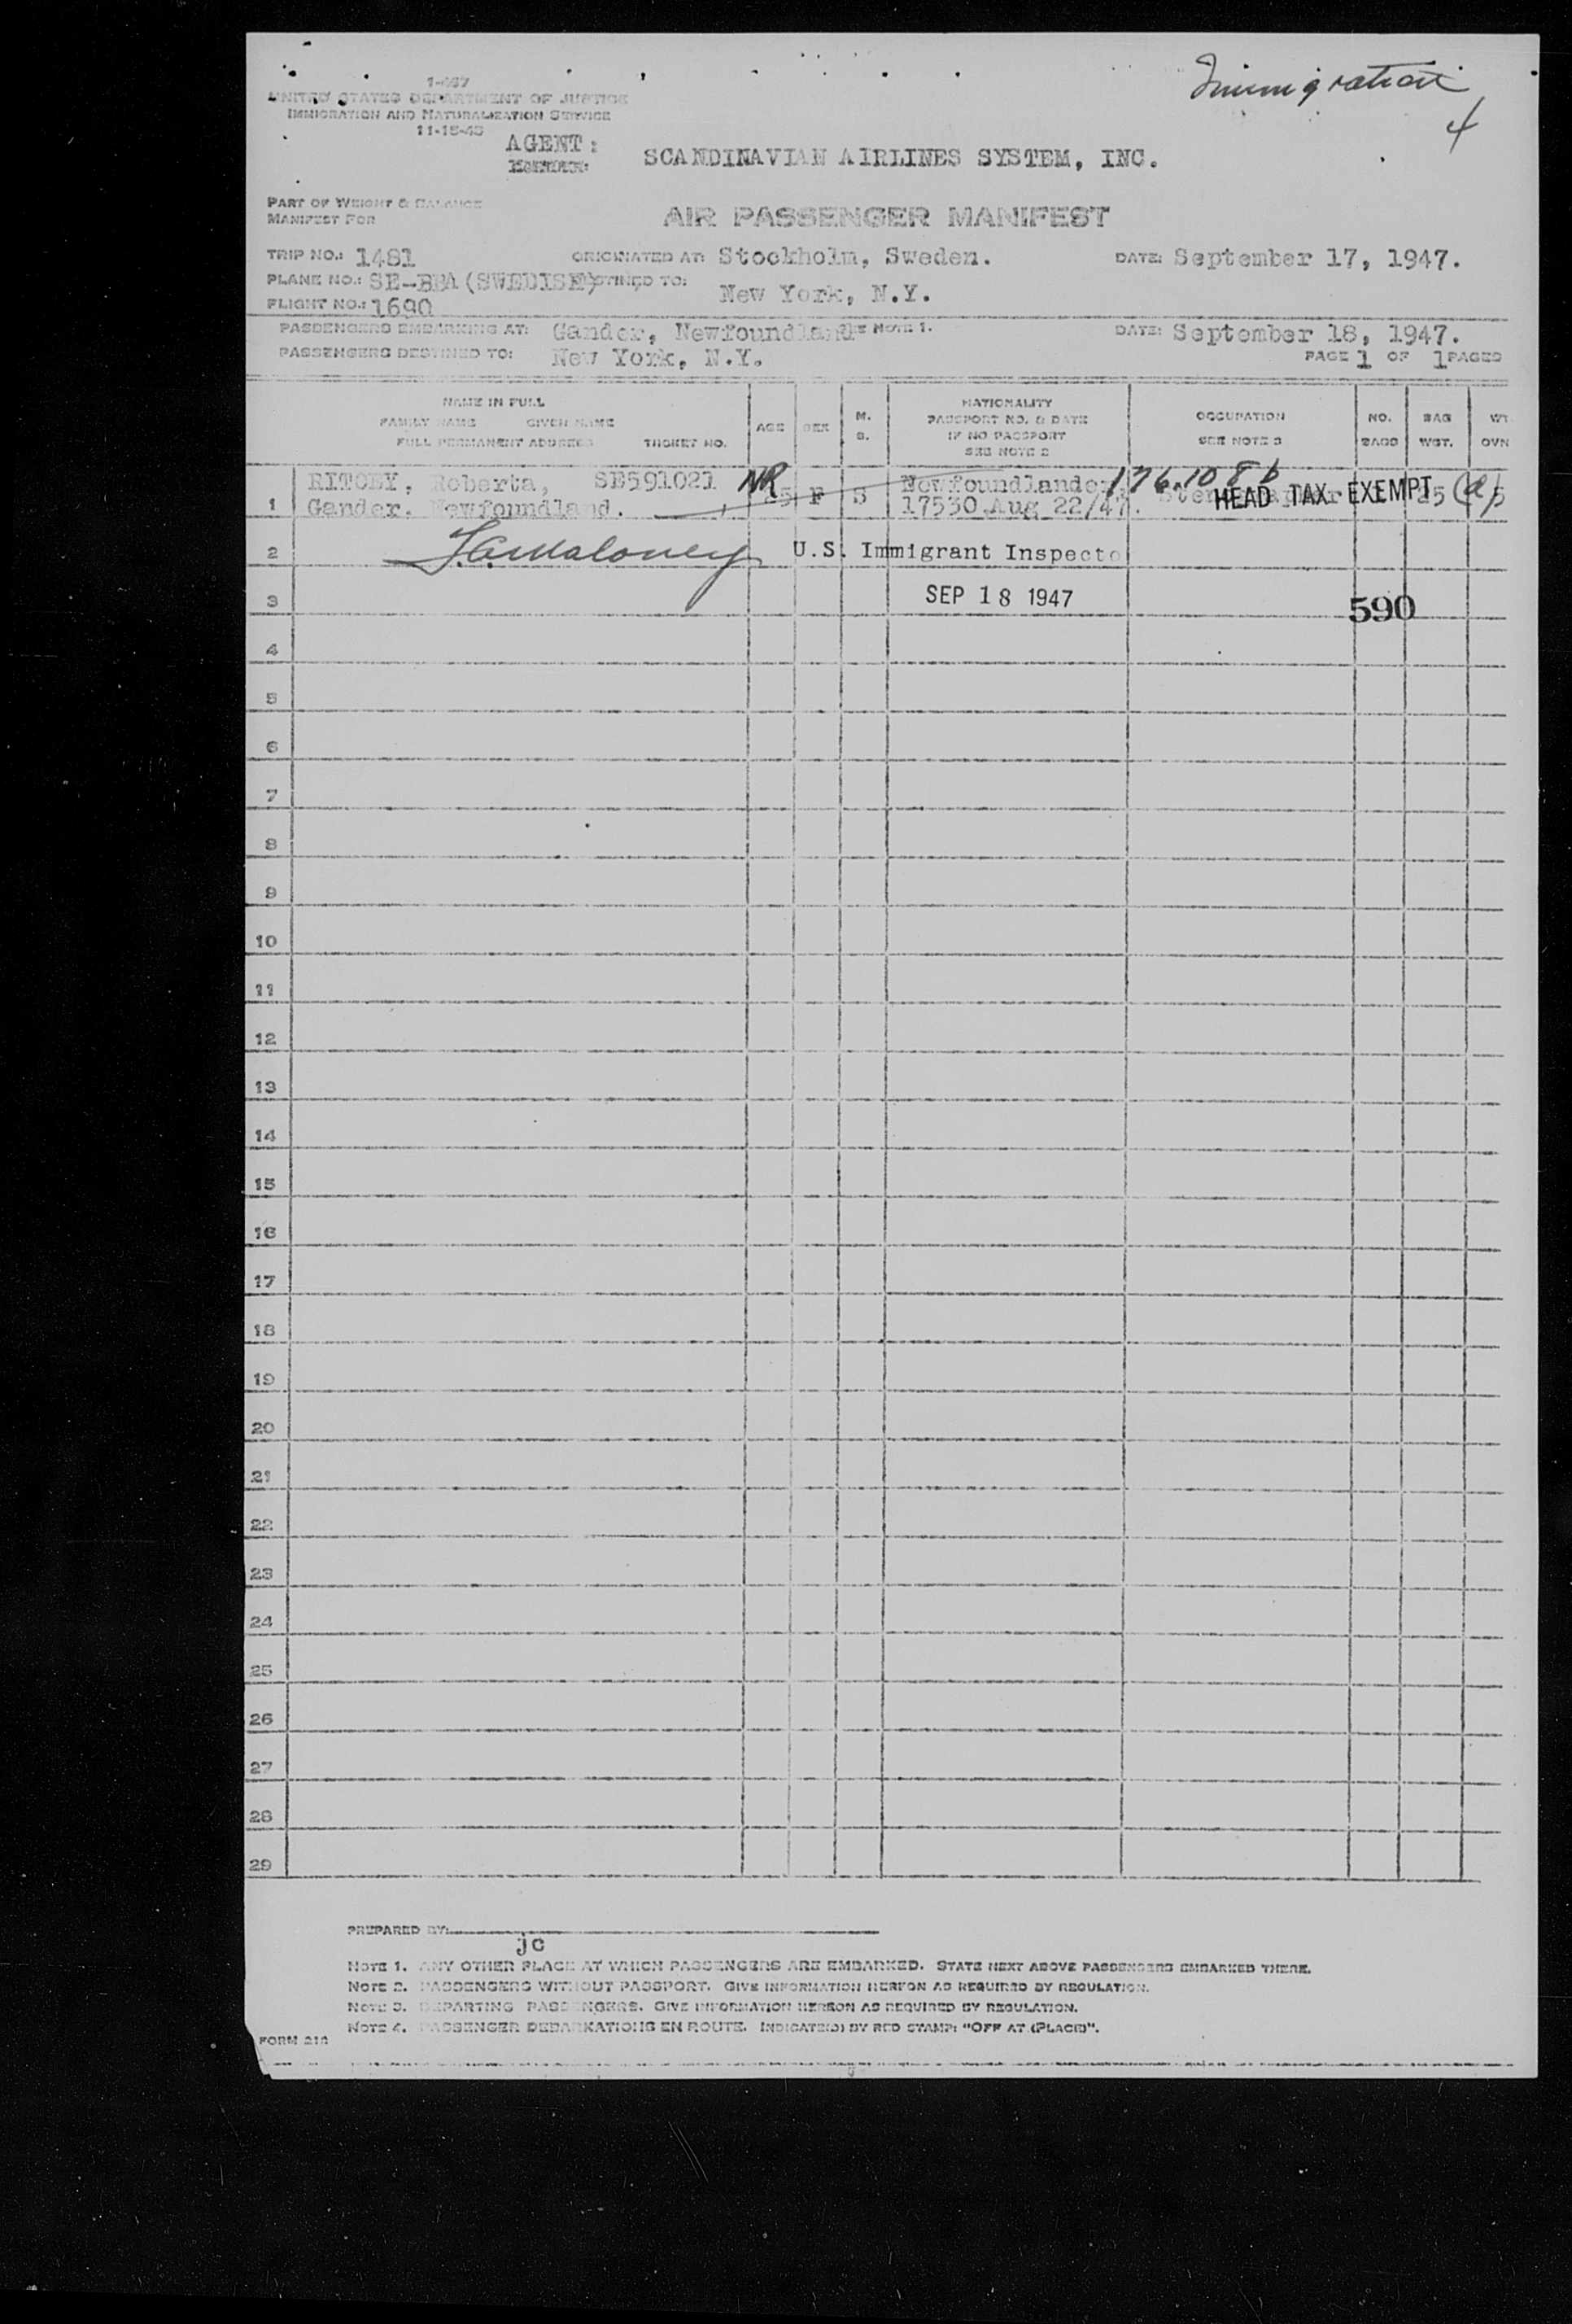 Immigration
4
1-467
UNITED STATES DEPARTMENT OF JUSTICE
IMMIGRATION AND NATURALIZATION SERVICE
11-15-45
AGENT:
SCANDINAVIAN AIRLINES SYSTEM, INC.
PART OF WEIGHT & BALANCE
MANIFEST FOR
AIR PASSENGER MANIFEST
TRIP NO.: 1481 ORIGINATED AT: Stockholm, Sweden. DATE: September 17, 1947.
PLANE NO.: (SWEDISH) DESTINED TO: New York, N.Y.
FLIGHT NO.: 1690
PASSENGERS EMBARKING AT: Gander, Newfoundland SEE NOTE 1. DATE: September 18, 1947.
PASSENGERS DESTINED TO: New York, N.Y. PAGE 1 OF 1 PAGES
NAME IN FULL
FAMILY NAME GIVEN NAME
FULL PERMANENT ADDRESS TICKET NO.
AGE
SEX
M.
S.
NATIONALITY
PASSPORT NO. & DATE
IF NO PASSPORT
SEE NOTE 2
OCCUPATION
SEE NOTE 3
NO.
BAGS
BAG
WGT.
WT
OVN
1 Roberta, SE591021 NR 25 F S Newfoundlander 176.10 8 b
Gander. Newfoundland. 17550 Aug 22/47. HEAD TAX EXEMPT
2 U.S. Immigrant Inspecto
3 SEP 18 1947 590
4
5
6
7
8
9
10
11
12
13
14
15
16
17
18
19
20
21
22
23
24
25
26
27
28
29
PREPARED BY:
jc
NOTE 1. ANY OTHER PLACE AT WHICH PASSENGERS ARE EMBARKED. STATE NEXT ABOVE PASSENGERS EMBARKED THERE.
NOTE 2. PASSENGERS WITHOUT PASSPORT. GIVE INFORMATION HEREON AS REQUIRED BY REGULATION.
NOTE 3. DEPARTING PASSENGERS. GIVE INFORMATION HEREON AS REQUIRED BY REGULATION.
NOTE 4. PASSENGER DEBARKATIONS EN ROUTE. INDICATE(D) BY RED STAMP: "OFF AT (PLACE)".
FORM 210